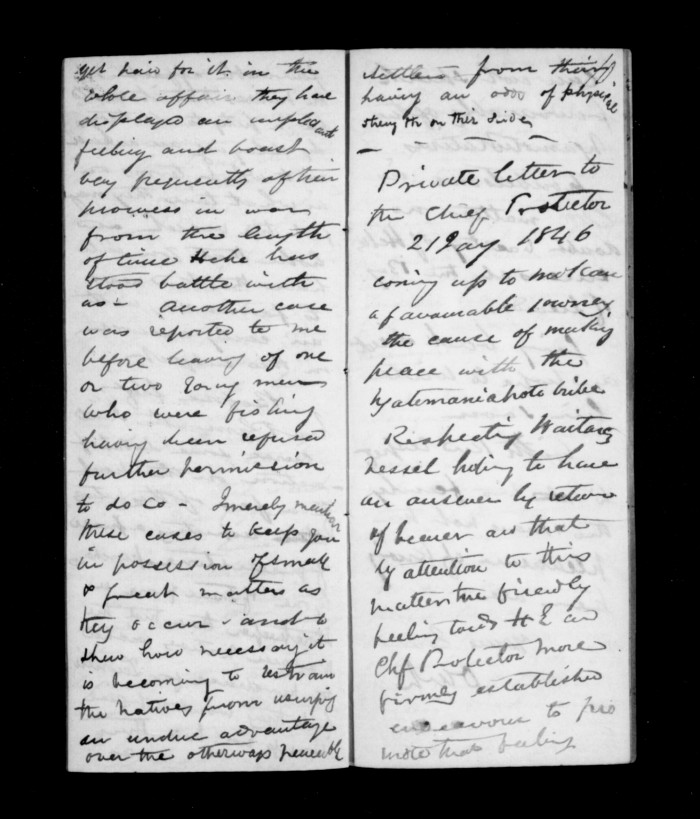 get paid for it. in the
whole affair they have
displayed an unpleasant
feeling and boast
very frequently of their
prowess in war
from the length
of time Heke has
stood battle with
us - another case
was reported to me
before leaving of one
or two young men
who were fishing
having been refused
further permission
to do so - I merely mention
these cases to keep you
in possession of small
& great matters as
they occur - and to
shew how necessary it
is becoming to restrain
the natives from usurping
an undue advantage
over the otherways peaceable
settlers from their
having an odds of physical
strength on their side
Private letter to
the Chief Protector
21 1846
coming up to
a favourable journey
the cause of making
peace with the
tribe
Respecting
vessel hoping to have
an answer by return
of bearer and that
by attention to this
matter the friendly
feeling towds H E and
Chf Protector more
firmly established
endeavour to pro
mote that feeling